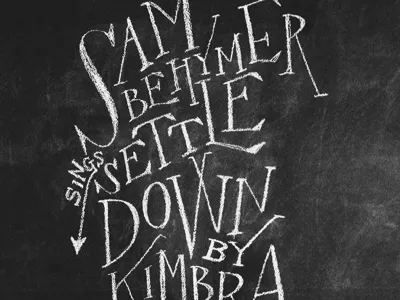 SAM
BEHYMER
SINGS
SETTLE
DOWN
BY
KIMBRA